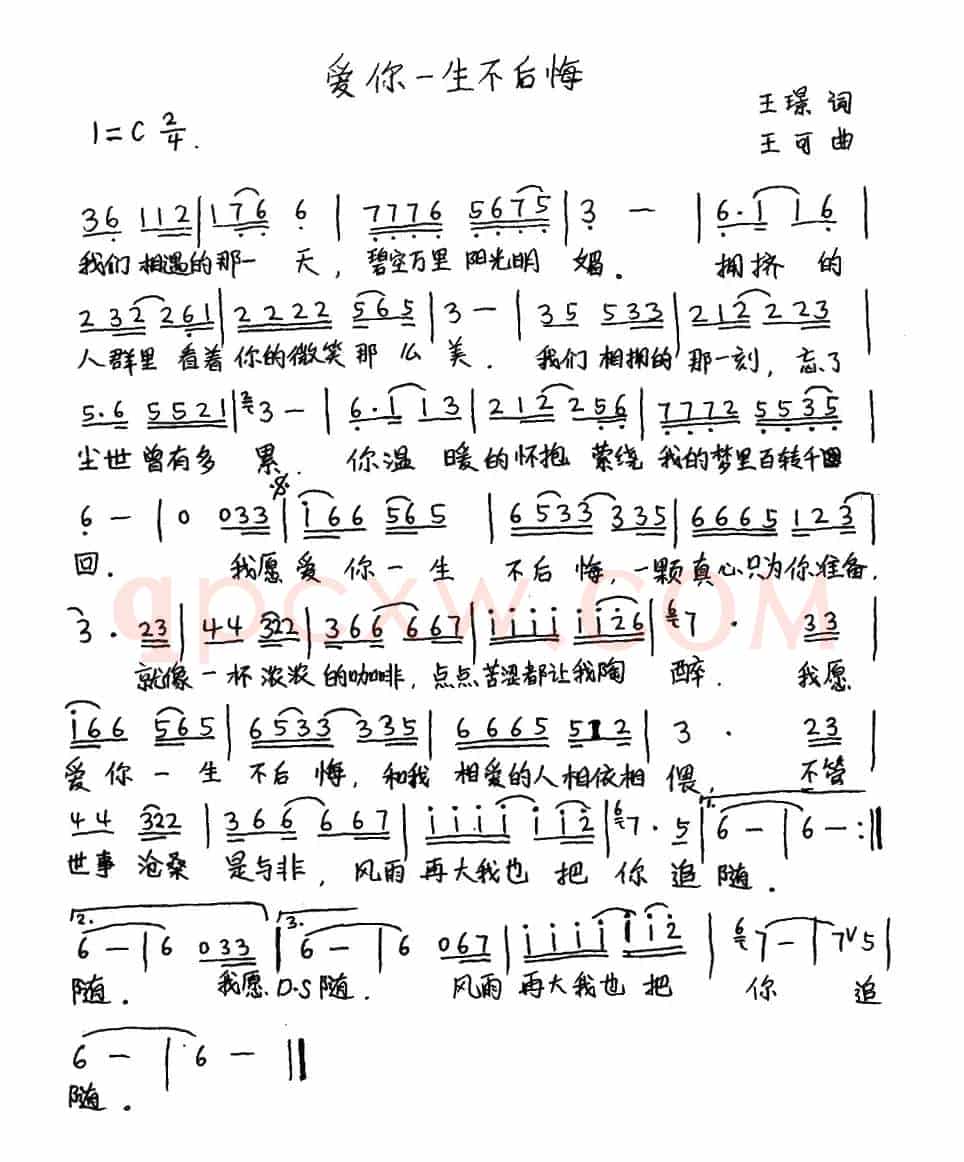 爱你一生不后悔
王璟 词
1=C 2/4.
王可曲
36 112 | 176 6 | 7776 5675 | 3 — | 6·1 16 |
我们相遇的那一 天，碧空万里 阳光明 媚． 拥挤 的
232 261 | 2222 565 | 3 — | 35 533 | 212 223 |
人群里 看着你的微笑那 么 美． 我们 相拥的 那一刻，忘了
5·6 5521 | 3 — | 6·1 13 | 212 256 | 7772 5535 |
尘世曾有多 累． 你温 暖的怀抱 萦绕 我的梦里百转千回
6 — | 0 033 | i66 565 | 6533 335 | 6665 123 |
回． 我愿 爱 你一 生 不后 悔，一颗真心只为你准备．
QPCXW.COM
3 · 23 | 44 322 | 366 667 | iiii ii26 | 7 · 33 |
就像一杯浓浓 的咖啡，点点苦涩都让我陶 醉． 我愿
i66 565 | 6533 335 | 6665 512 | 3 · 23 |
爱你 一 生 不后 悔，和我 相爱的人相依相 偎， 不管
44 322 | 366 667 | iiii ii2 | 7·5 | 1. 6 — | 6 — :||
世事 沧桑 是与非，风雨再大我也把 你 追 随．
2. 6 — | 6 033 | 3. 6 — | 6 067 | iiii ii2 | 7 — | 7∨5 |
随． 我愿 D.S 随． 风雨再大我也把 你 追
6 — | 6 — ||
随．